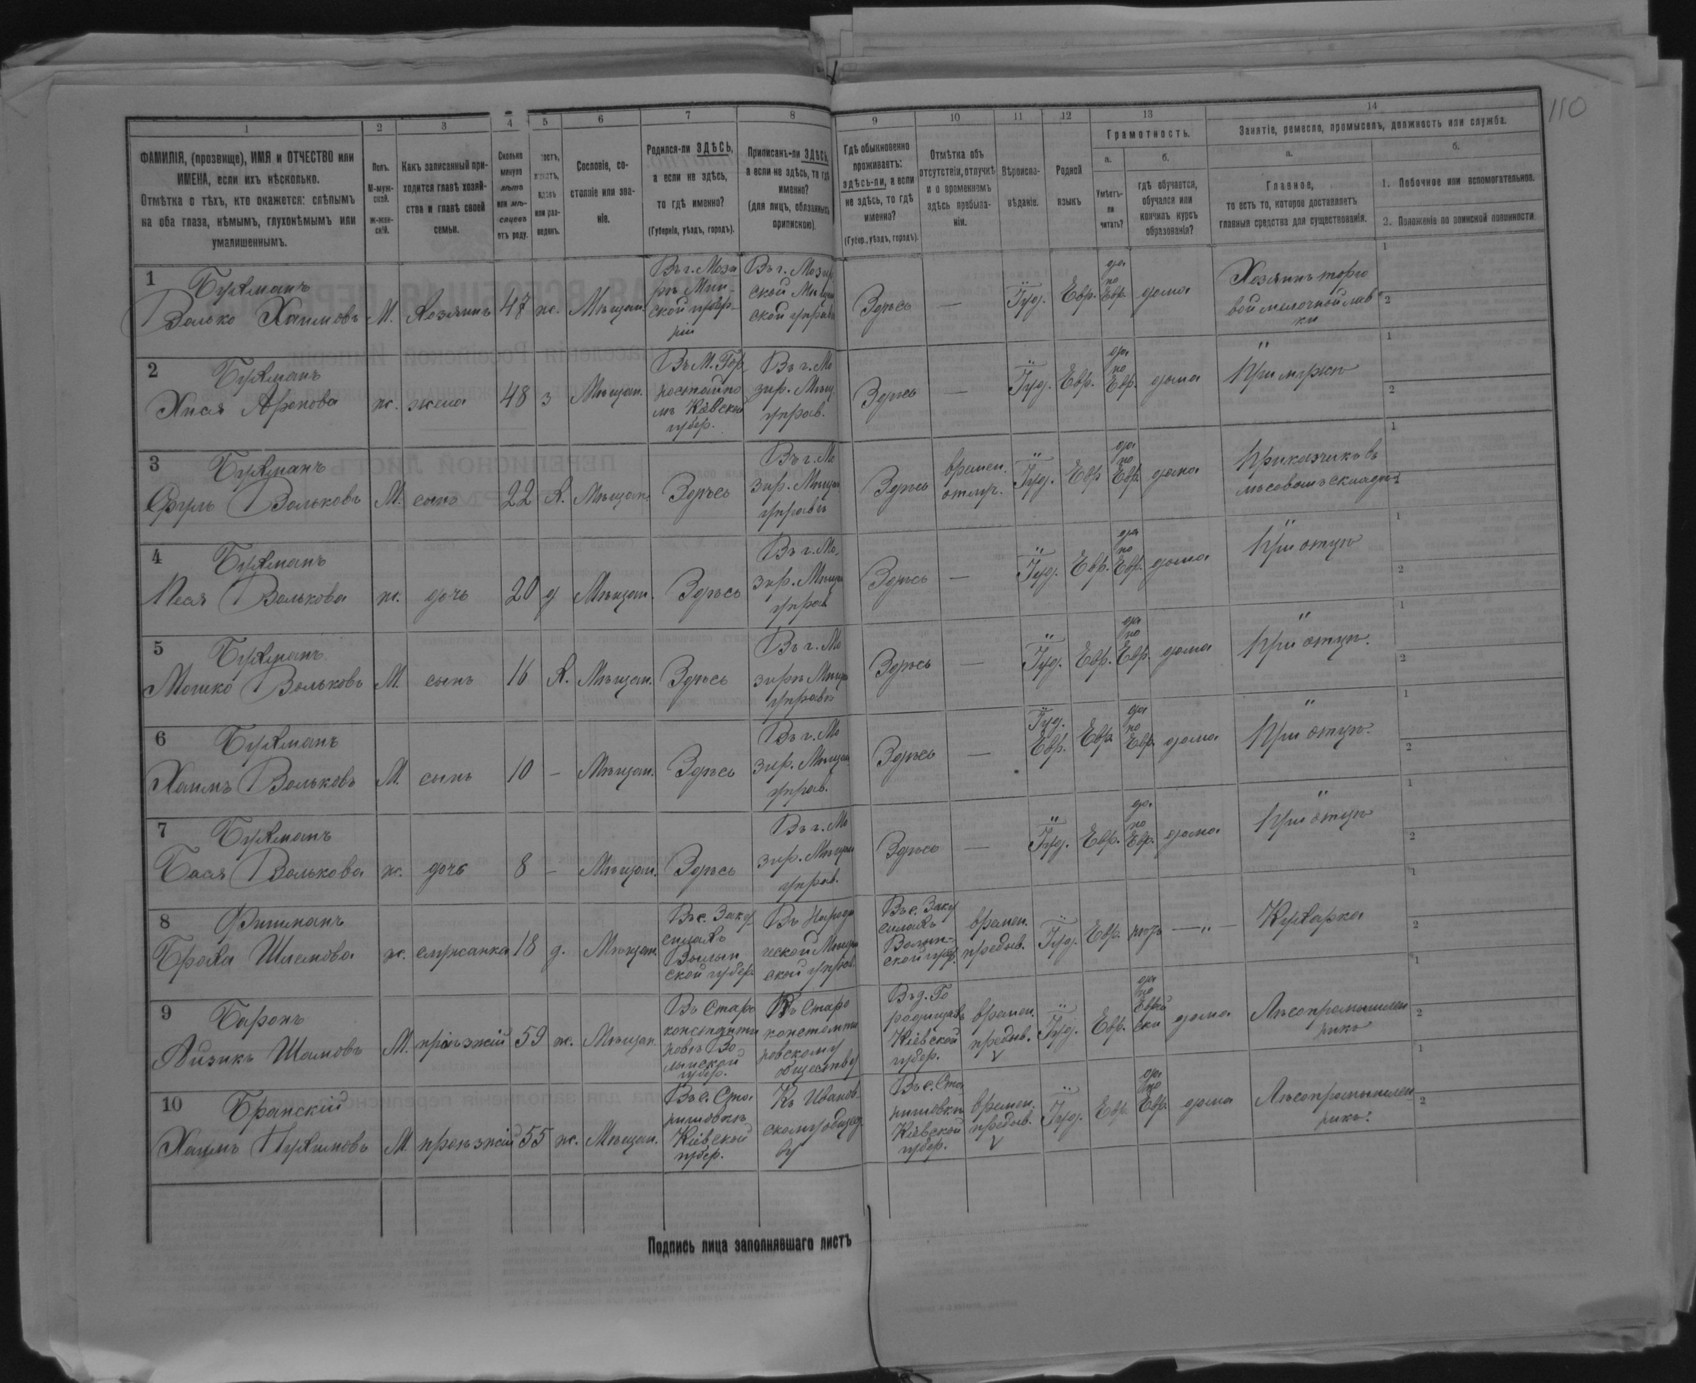 110
1 2 3 4 5 6 7 8 9 10 11 12 13 14
ФАМИЛІЯ, (прозвище), ИМЯ и ОТЧЕСТВО или
ИМЕНА, если ихъ нѣсколько.
Отмѣтка о тѣхъ, кто окажется: слѣпымъ
на оба глаза, нѣмымъ, глухонѣмымъ или
умалишеннымъ.
Полъ.
М-муж-
ской.
ж-жен-
скій.
Какъ записанный при-
ходится главѣ хозяй-
ства и главѣ своей
семьи.
Сколько
минуло
лѣтъ
или мѣ-
сяцевъ
отъ роду.
или раз-
веденъ.
Сословіе, со-
стояніе или зва-
ніе.
Родился-ли ЗДѢСЬ,
а если не здѣсь,
то гдѣ именно?
(Губернія, уѣздъ, городъ).
Приписанъ-ли ЗДѢСЬ,
а если не здѣсь, то гдѣ
именно?
(для лицъ, обязанныхъ
припискою).
Гдѣ обыкновенно
проживаетъ:
здѣсь-ли, а если
не здѣсь, то гдѣ
именно?
(Губер., уѣздъ, городъ).
Отмѣтка объ
отсутствіи, отлучкѣ
и о временномъ
здѣсь пребыва-
ніи.
Вѣроиспо-
вѣданіе.
Родной
языкъ
Грамотность.
а.
Умѣетъ-
ли
читать?
б.
гдѣ обучается,
обучался или
кончилъ курсъ
образованія?
Занятіе, ремесло, промыселъ, должность или служба.
а.
Главное,
то есть то, которое доставляетъ
главныя средства для существованія.
б.
1. Побочное или вспомогательное.
2. Положеніе по воинской повинности.
1
Волько Хаимовъ М. Хозяинъ 47 ж. Мѣщан.
Въ г. Мозы
рѣ Мин-
ской губер-
ніи
Здѣсь — Іуд. Евр.
да
по
Евр.
дома
Хозяинъ торго
вой мелочной лав
ки
1
2
2
Хася Аронова ж. жена 48 з Мѣщан.
Кіевской
губер.
Въ г. Мо
зыр. Мѣщ
управ.
Здѣсь — Іуд. Евр.
да
по
Евр.
дома
При мужѣ
1
2
3
Вольковъ М. сынъ 22 х. Мѣщан. Здѣсь
Въ г. Мо
зыр. Мѣщан
управѣ
Здѣсь
времен.
отлуч.
Іуд. Евр
да
по
Евр.
дома
Приказчикъ въ
лѣсовомъ складѣ
1
2
4
Песя Волькова ж. дочь 20 д Мѣщан. Здѣсь
Въ г. Мо,
зыр. Мѣщан
управ
Здѣсь — Іуд. Евр.
да
по
Евр.
дома
При отцѣ
1
2
5
Мошко Вольковъ М. сынъ 16 х. Мѣщан. Здѣсь
Въ г. Мо
зырѣ Мѣщан
управѣ
Здѣсь — Іуд. Евр.
да
по
Евр.
дома
При отцѣ.
1
2
6
Хаимъ Вольковъ М. сынъ 10 – Мѣщан. Здѣсь
Въ г. Мо
зыр. Мѣщан
управ.
Здѣсь —
Іуд.
Евр.
Евр.
да
по
Евр.
дома
При отцѣ.
1
2
7
Бася Волькова ж. дочь 8 – Мѣщан. Здѣсь
Въ г. Мо
зыр. Мѣщан
управ.
Здѣсь — Іуд. Евр.
да
по
Евр.
дома
При отцѣ
1
2
8
Фишманъ
Броха Шлемова ж. служанка 18 д. Мѣщан.
Волын
ской губер
времен.
пребыв.
Іуд. Евр. нѣтъ — „ —
Кухарка
1
2
9
Баронъ
Айзикъ М. пріѣзжій 59 ж. Мѣщан.
Въ Старо
константи
новѣ Во
лынской
губер.
Къ Старо
константи
новскому
обществу
Въ д. Го
родищахъ
Кіевской
губер.
времен.
пребыв.
Іуд. Евр.
да
по
Еврей
ски
дома
Лѣсопромышлен
никъ
1
2
10
Бранскій
Хаимъ М. пріѣзжій 55 ж. Мѣщан.
Кіевской
губер.
Къ Иванов
скому общес
ву
Кіевской
губер.
времен.
пребыв.
Іуд. Евр.
да
по
Евр
дома
Лѣсопромышлен
никъ.
1
2
Подпись лица заполнявшаго листъ